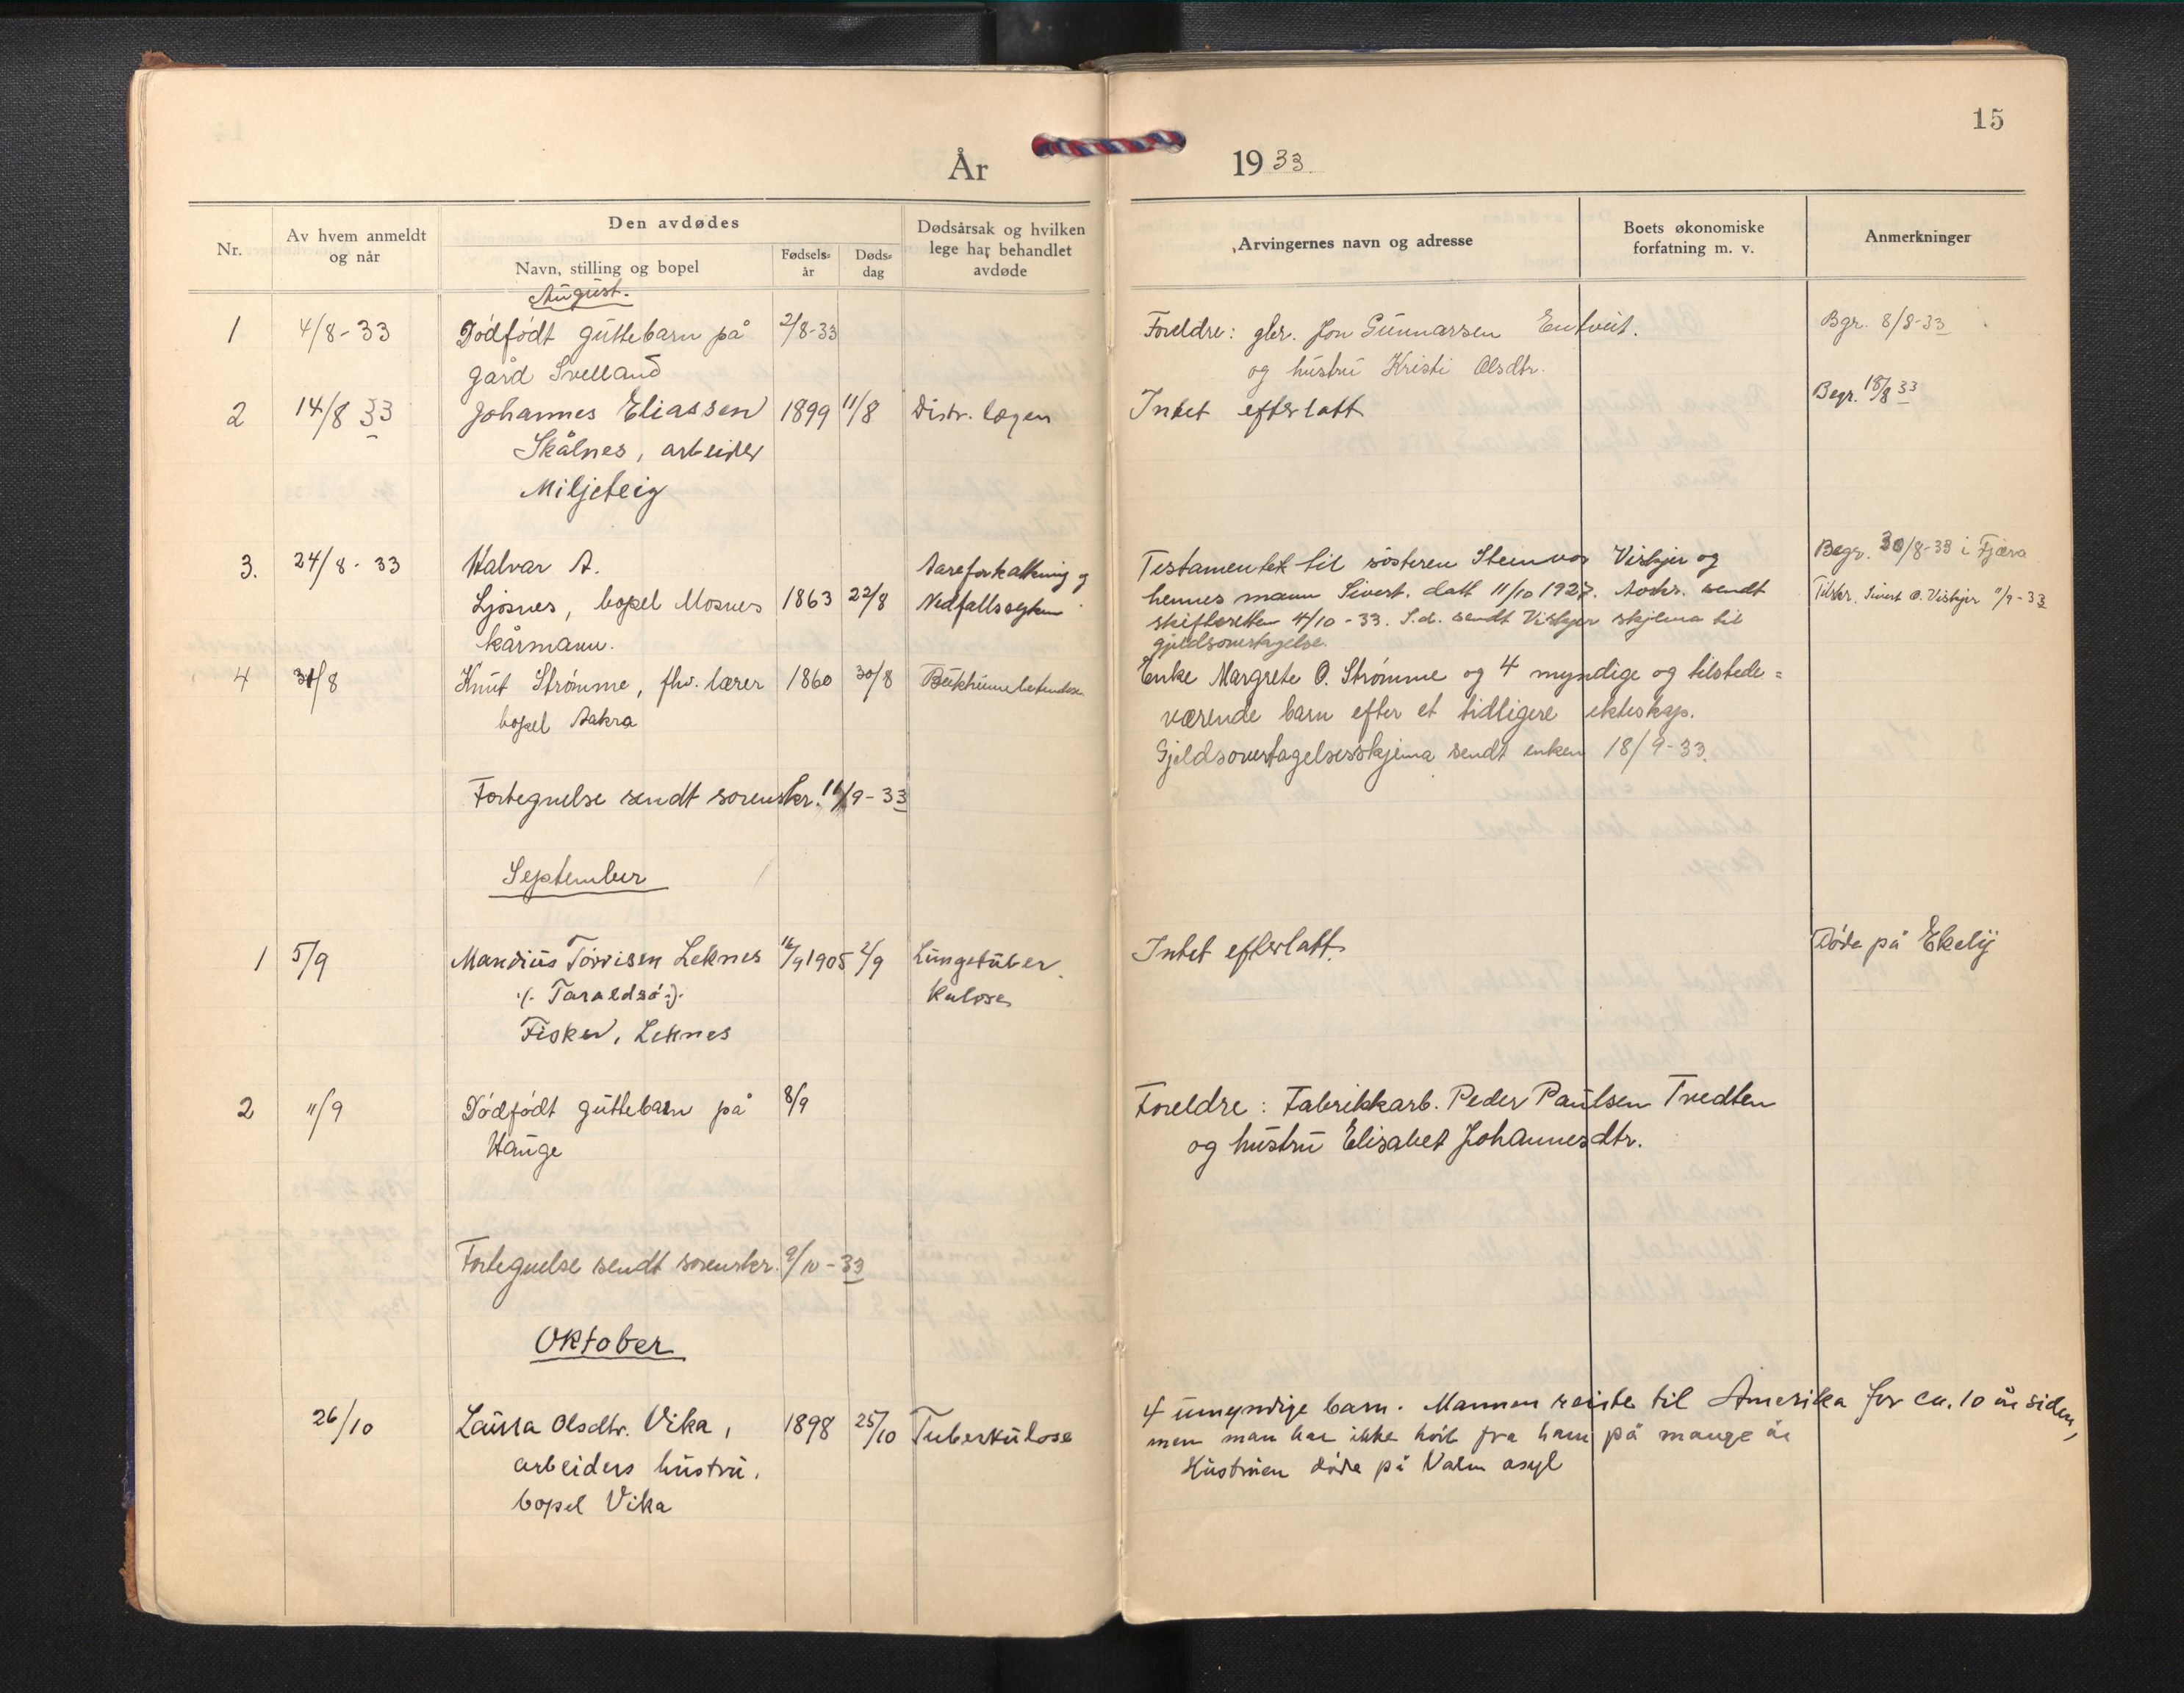 15
År 1933
Nr.
Av hvem anmeldt
og når
Den avdødes
Navn, stilling og bopel
Fødsels-
år
Døds-
dag
Dødsårsak og hvilken
lege har behandlet
avdøde
Arvingernes navn og adresse
Boets økonomiske
forfatning m. v.
Anmerkninger
August.
1 4/8-33 Dødfødt guttebarn på 2/8-33 Foreldre: gbr. Jon Gunnarsen Entveit. Bgr. 8/8-33
gård Svelland og hustru Kristi Olsdtr.
2 14/8 33 Johannes Eliassen 1899 11/8 Distr. lægen Intet efterlatt Begr. 18/8 33
Skålnes, arbeider
Miljeteig
3. 24/8-33 Halvar A. Aareforkalkning og Testamentet til søsteren Steinvor Visbjer og Begr. 30/8-33 i Fjæra
Ljosnes, bopel Mosnes 1863 22/8 Nedfallssyken. hennes mann Sivert. datt 11/10 1927. Avskr. sendt Tilskr. Sivert O. Visbjer 11/9-33
skifteretten 4/10-33. S.d. sendt Visbjer skjema til
kårmann. gjeldsovertagelse.
4 31/8 Knut Strømme, fhv. lærer 1860 30/8 Enke Margrete O. Strømme og 4 myndige og tilstede=
bopel Aakra værende barn efter et tidligere ekteskap.
Gjeldsovertagelsesskjema sendt enken 18/9-33.
Fortegnelse sendt sorenskr. 11/9-33
September
1 5/9 Mandius Torrisen Leknes 16/9 1905 2/9 Lungetuber Intet efterlatt. Døde på Ekely
./. Taraldsø :). kulose
Fisker, Leknes
2 11/9 Dødfødt guttebarn på 8/9 Foreldre: Fabrikkarb. Peder Paulsen Tvedten
Hauge og hustru Elisabet Johannesdtr.
Fortegnelse sendt sorenskr. 9/10-33
Oktober
26/10 Laura Olsdtr. Vika, 1898 25/10 Tuberkulose 4 umyndige barn. Mannen reiste til Amerika for ca. 10 år siden,
men man har ikke hørt fra ham på mange år
arbeiders hustru, Hustruen døde på Valen asyl
bopel Vika